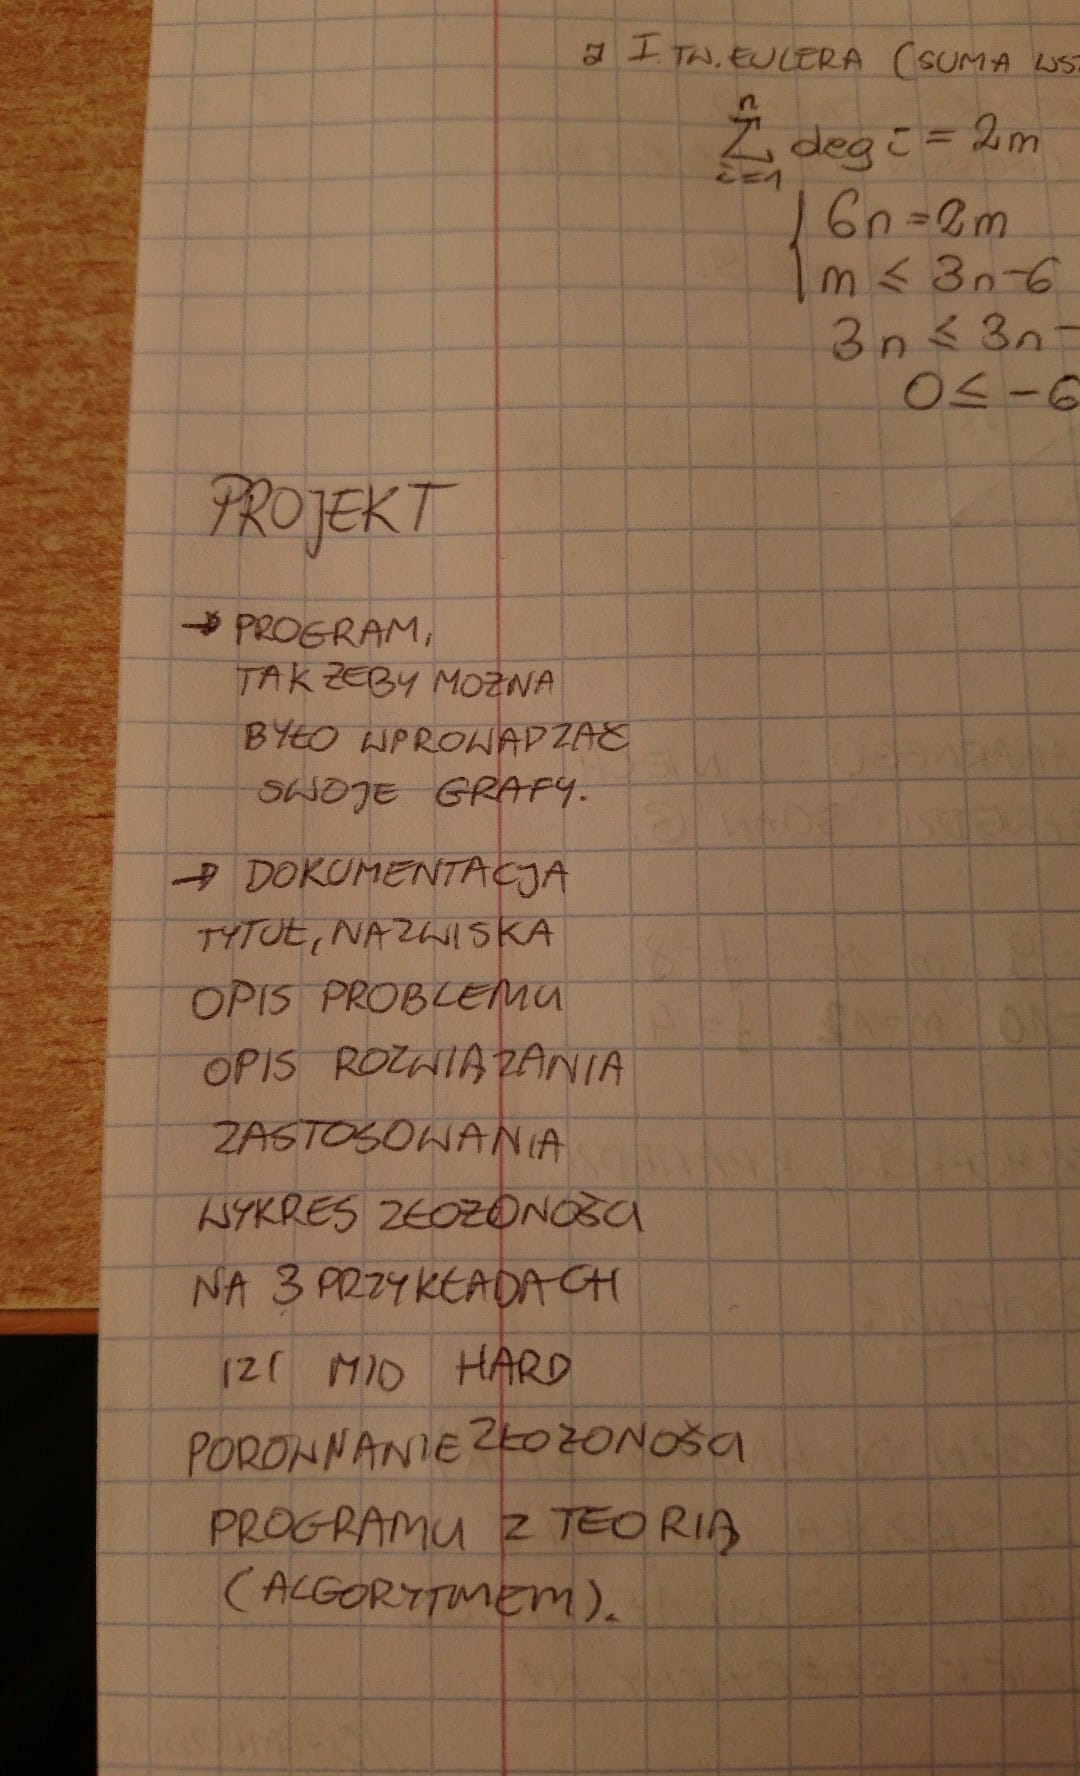 z I. TW. EULERA (SUMA
n
Σ deg i = 2m
i=1
6n = 2m
m ≤ 3n-6
3n ≤ 3n-
0 ≤ -6
PROJEKT
→ PROGRAM,
TAK ŻEBY MOŻNA
BYŁO WPROWADZAĆ
SWOJE GRAFY.
→ DOKUMENTACJA
TYTUŁ, NAZWISKA
OPIS PROBLEMU
OPIS ROZWIĄZANIA
ZASTOSOWANIA
WYKRES ZŁOŻONOŚCI
NA 3 PRZYKŁADACH
IZI MID HARD
PORÓWNANIE ZŁOŻONOŚCI
PROGRAMU Z TEORIĄ
(ALGORYTMEM).